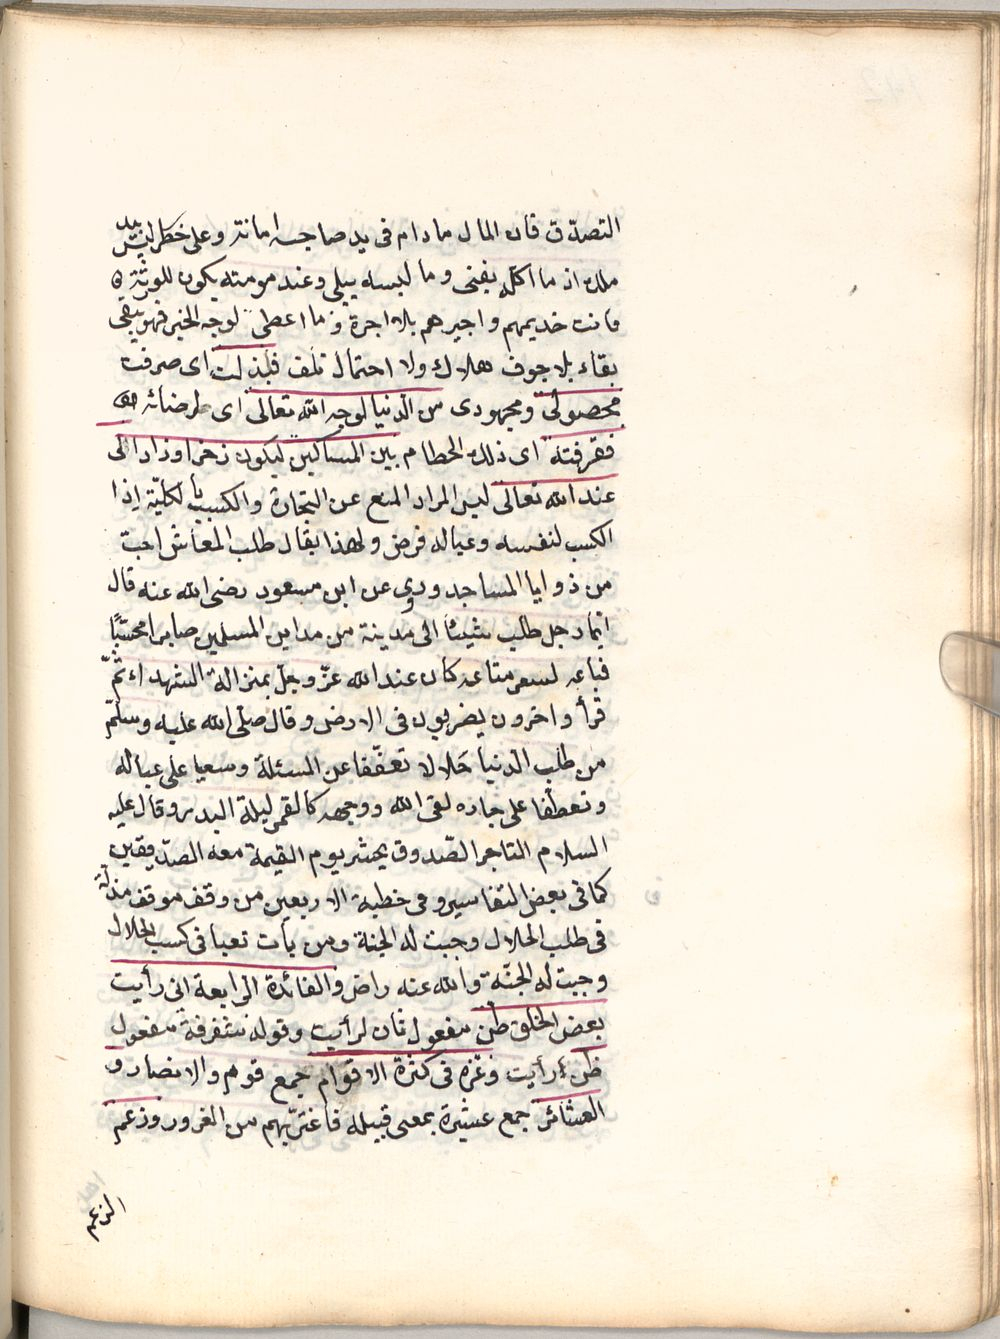 التصدّق فان المال مادام فى يد صاحبه امانة وعلى خطر ليس بيد
ملك اذ ما اكله يفنى وما لبسه يبلى وعند موته يكون للورثة
فانت خديمهم واجيرهم بلا اجرة وما اعطى لوجه الخير فهو يبقى
بقاء بلا خوف هلاك ولا احتمال تلف فبذلت اى صرفت
محصولى ومجهودى من الدنيا لوجه الله تعالى اى لرضائه
ففرقته اى ذلك الحطام بين المساكين ليكون ذخرا وزادا لى
عند الله تعالى ليس المراد المنع عن التجارة والكسب بالكليّة اذا
الكسب لنفسه وعياله فرض ولهذا يقال طلب المعاش احبّ
من زوايا المساجد وروى عن ابن مسعود رضى الله عنه قال
ايما رجل طلب شيئا الى مدينة من مداين المسلمين صابرا محتسبًا
فباعه لسعر متاعه كان عند الله عزّ وجلّ بمنزالة الشهداء ثمّ
قرأ واخرون يضربون فى الارض وقال صلّى الله عليه وسلّم
من طلب الدنيا حلالا تعفّفا عن المسئلة وسعيا على عياله
وتعطّفا على جاره لقى الله ووجهه كالقمر ليلة البدر وقال عليه
السلام التاجر الصّدوق يحشر يوم القيمة معه الصدّيقين
كما فى بعض التفاسير وفى خطبة الاربعين من وقف موقف مذلّة
فى طلب الحلال وجبت له الجنة ومن بات تعبا فى كسب الحلال
وجبت له الجنّة والله عنه راض والفائدة الرابعة انى رأيت
بعض الخلق ظن مفعول ثان لرأيت وقوله متفرقة مفعول
ظن رأيت وعزه فى كثرة الاقوام جمع قوم والانصار و
العشائر جمع عشيرة بمعنى قبيلة فاغترّ بهم من الغرور وزعم